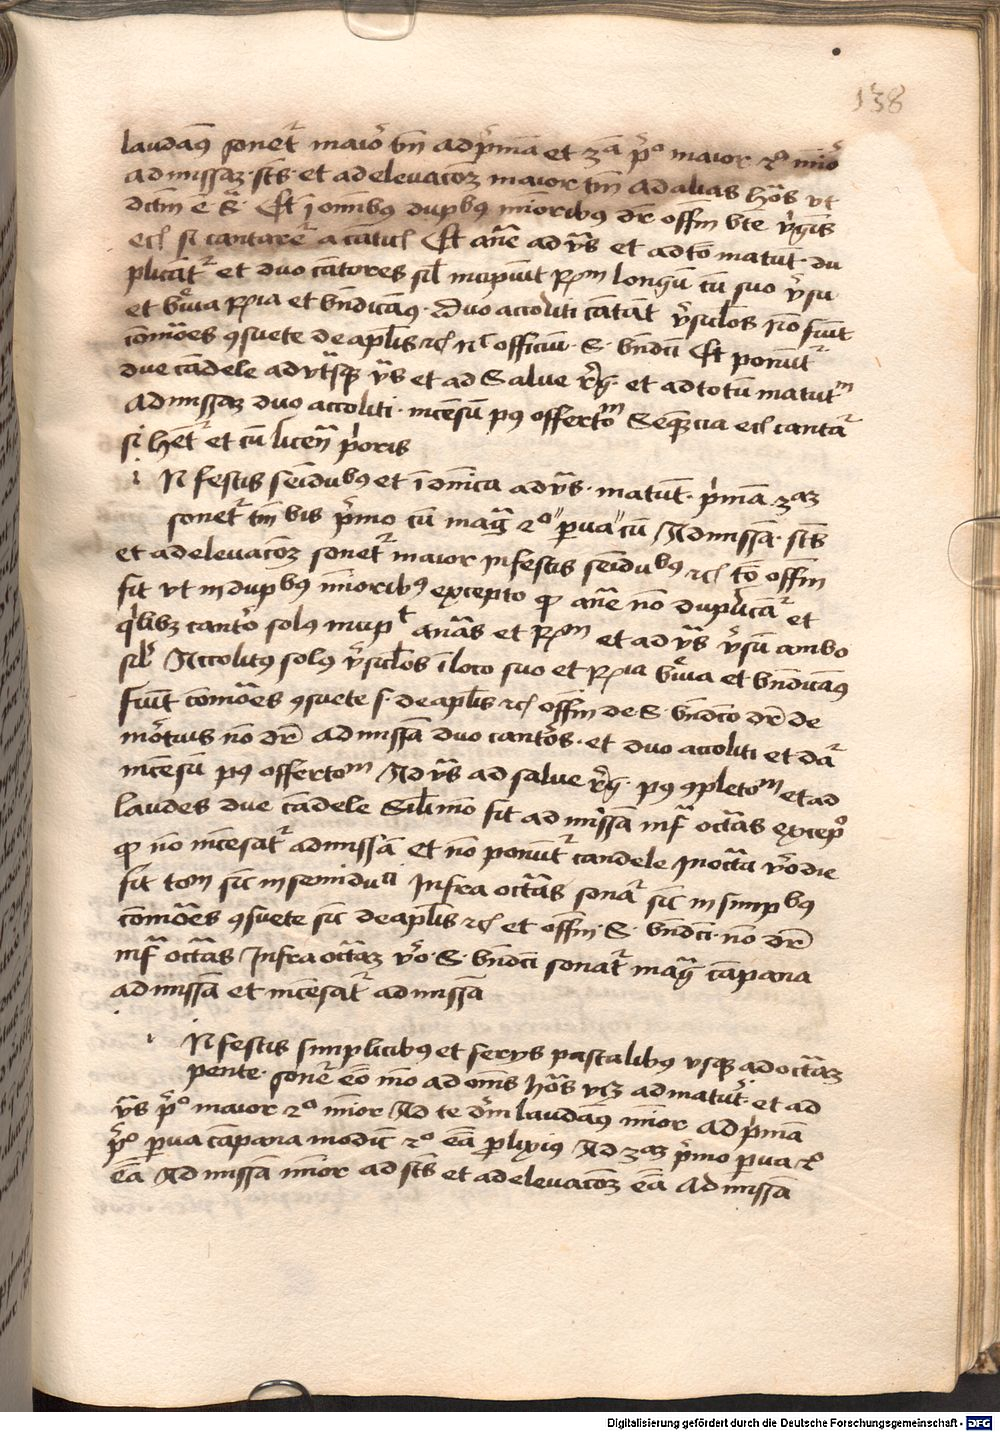 138
laudam⁹ sonet᷑ maior tm̄ ad p̄mā et 3ᵃ p̄ᵒ maior 2ᵒ mīor
ad missaȝ sc̄tꝰ et ad eleuacōȝ maior tm̄ ad alias hōs vt
dictm̄ ē S. Et ī omībus dupbus mīoribus dr̄ offm̄ bte v̓gīs
ecl̓ si cantare᷑ a cūcul̓ Et an̄e ad vꝰs et ad to matut̄ du
plicāt᷑ et duo cātores sil̓ incipiūt Rᵐ longū cū suo v̓su
et bᵉuia Rᵒia et bn̄dicam⁹ Duo accoliti cātāt v̓siculos Nō fiūt
comōes ꝯsuete de aplis rcl̓ nᶜ officiū S. bn̄dcī Et ponūt᷑
due cādele ad vt̓sqꝫ vꝰs et ad Salue r̓g. et ad totū matutᵐ
Ad missaȝ duo accoliti incēsū pꝰ offertoᵐ Seqꝫcia ecl̓ canta᷑
si het᷑ et cū licen̄ p̓oris
i N festis seīdubꝰ et ī dn̄ica ad vꝰs matut̄ p̓mā 3ᵃȝ
sonet᷑ tm̄ bis p̓mo cū mag̓ 2ᵒ "pua" cū Ad missā sc̄tꝰ
et ad eleuacōȝ sonet᷑ maior In festis seīdubꝰ rcl̓ to offm̄
fit vt in dupbus mīoribꝰ excepto ꝙ an̄e nō duplica᷑ et
q̓libꝫ cantor solus incipᵗ an̄as et Rᵐ et ad vꝰs v̓sū ambo
sil̓ Accolitus solus v̓siculos ī loco suo et Rᵒia bᵉuia et bn̄dicam⁹
Fiūt comōes ꝯsuete s. de aplis rcl̓ offm̄ de S. bn̄dco dr̄ de
mortuis nō dr̄ Ad missā duo cantores et duo accoliti et da᷑
incēsū pꝰ offertoᵐ Ad vꝰs ad salue r̓g. pꝰ ꝯpletoᵐ et ad
laudes due cādele Silī mō fit ad missā inf̓ octās excepᵒ
ꝙ nō incēsat᷑ ad missā et nō ponūt᷑ candele In octā v̓o die
fit toᵐ sic̄ in semiduci Infra octās sona᷑ sic̄ in simpbꝰ
comōes ꝯsuete sic̄ de aplis rcl̓ et offm̄ S. bn̄dcī nō dr̄
inf̓ octās Infra octāȝ v̓o S. bn̄dcī sonat᷑ mag̓ cāpana
ad missā et incēsat᷑ ad missā
i N festis simplicibus et ferijs pascalibus vsqꝫ ad octāȝ
pente. sone᷑ eo mō ad om̄s hōs vcꝫ ad matut̄ et ad
vꝰs p̄ᵒ maior 2ᵒ mīor Ad te dm̄ laudam⁹ mīor ad p̓mā
p̄ᵒ pua cāpana modic̄ 2ᵒ eā plixius Ad 3ᵃȝ p̓mo pua 2ᵒ
eā Ad missā mīor ad sc̄tꝰ et ad eleuacōȝ eā Ad missā
Digitalisierung gefördert durch die Deutsche Forschungsgemeinschaft - DFG